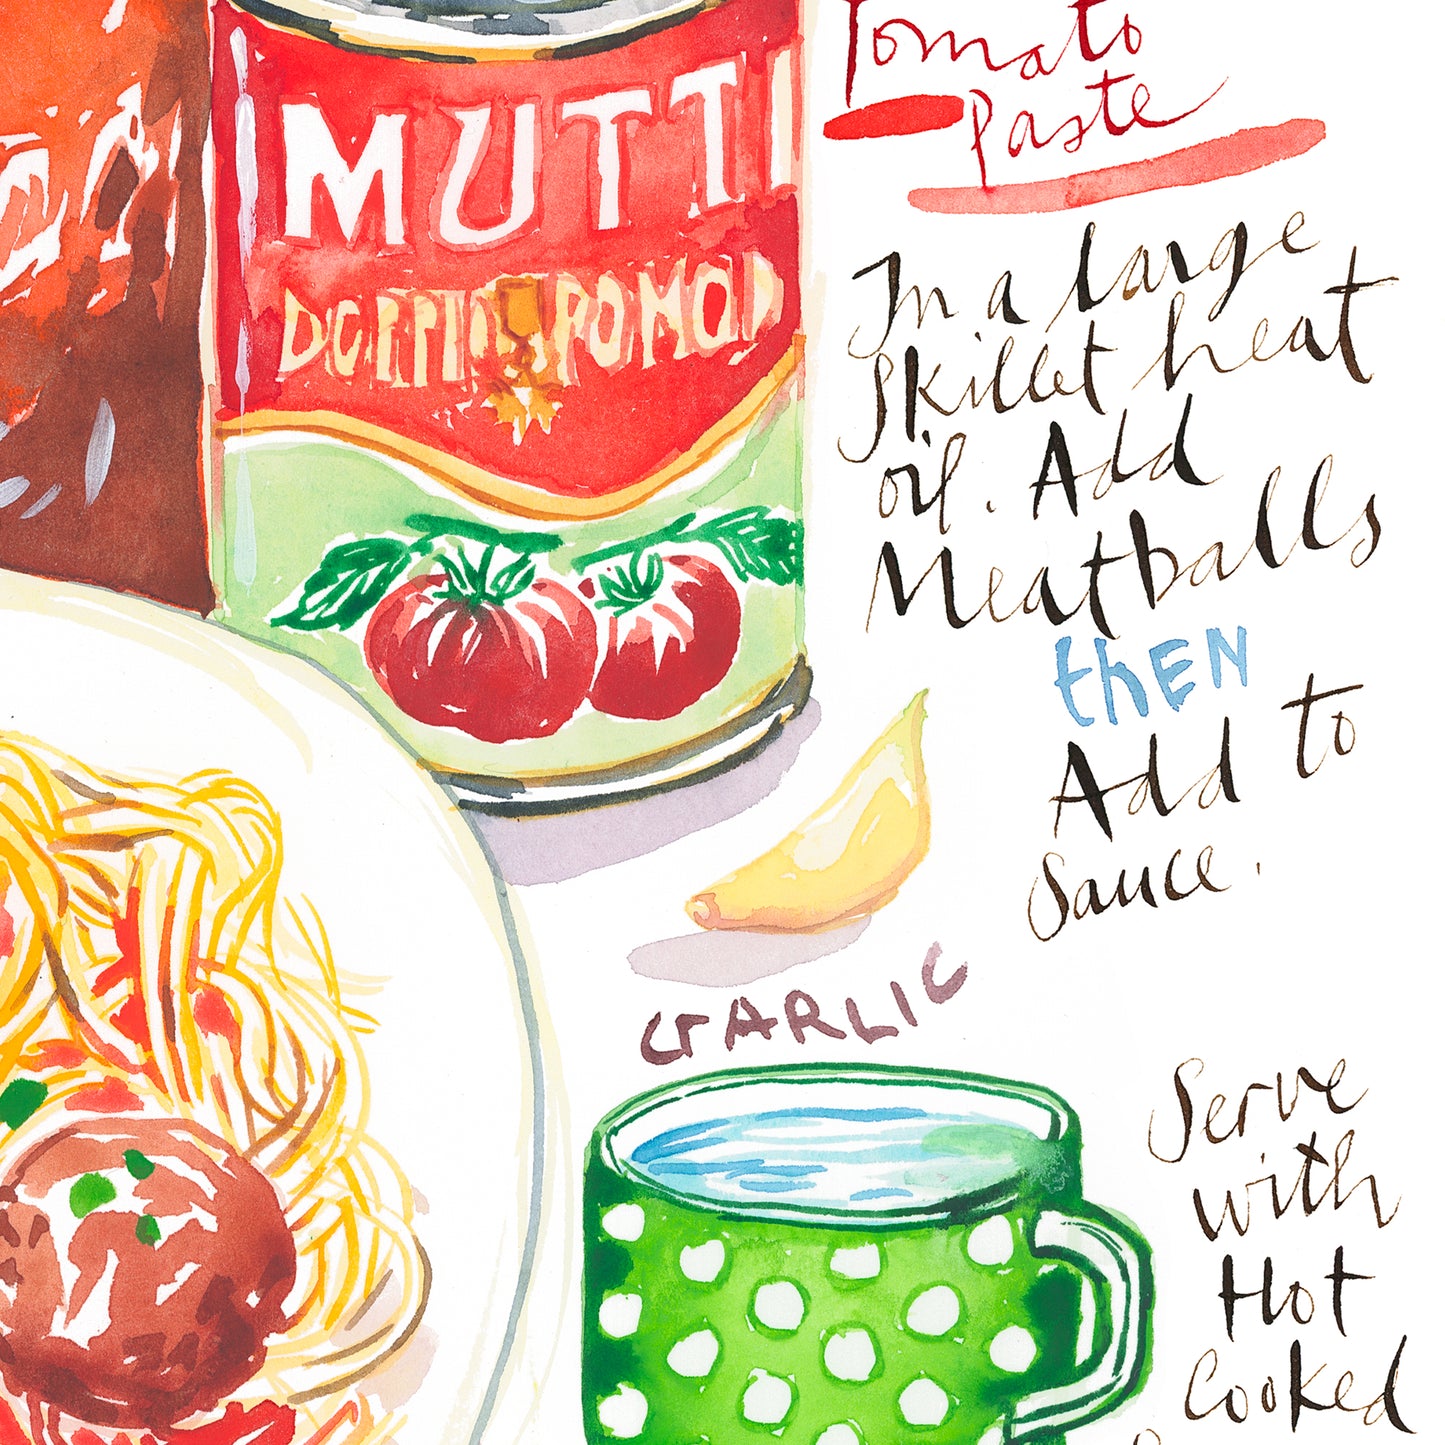 MUTTI
DOPPIO POMOD
Tomato
Paste
In a large
skillet heat
oil. Add
Meatballs
thEN
Add to
Sauce.
GARLIC
Serve
with
Hot
Cooked